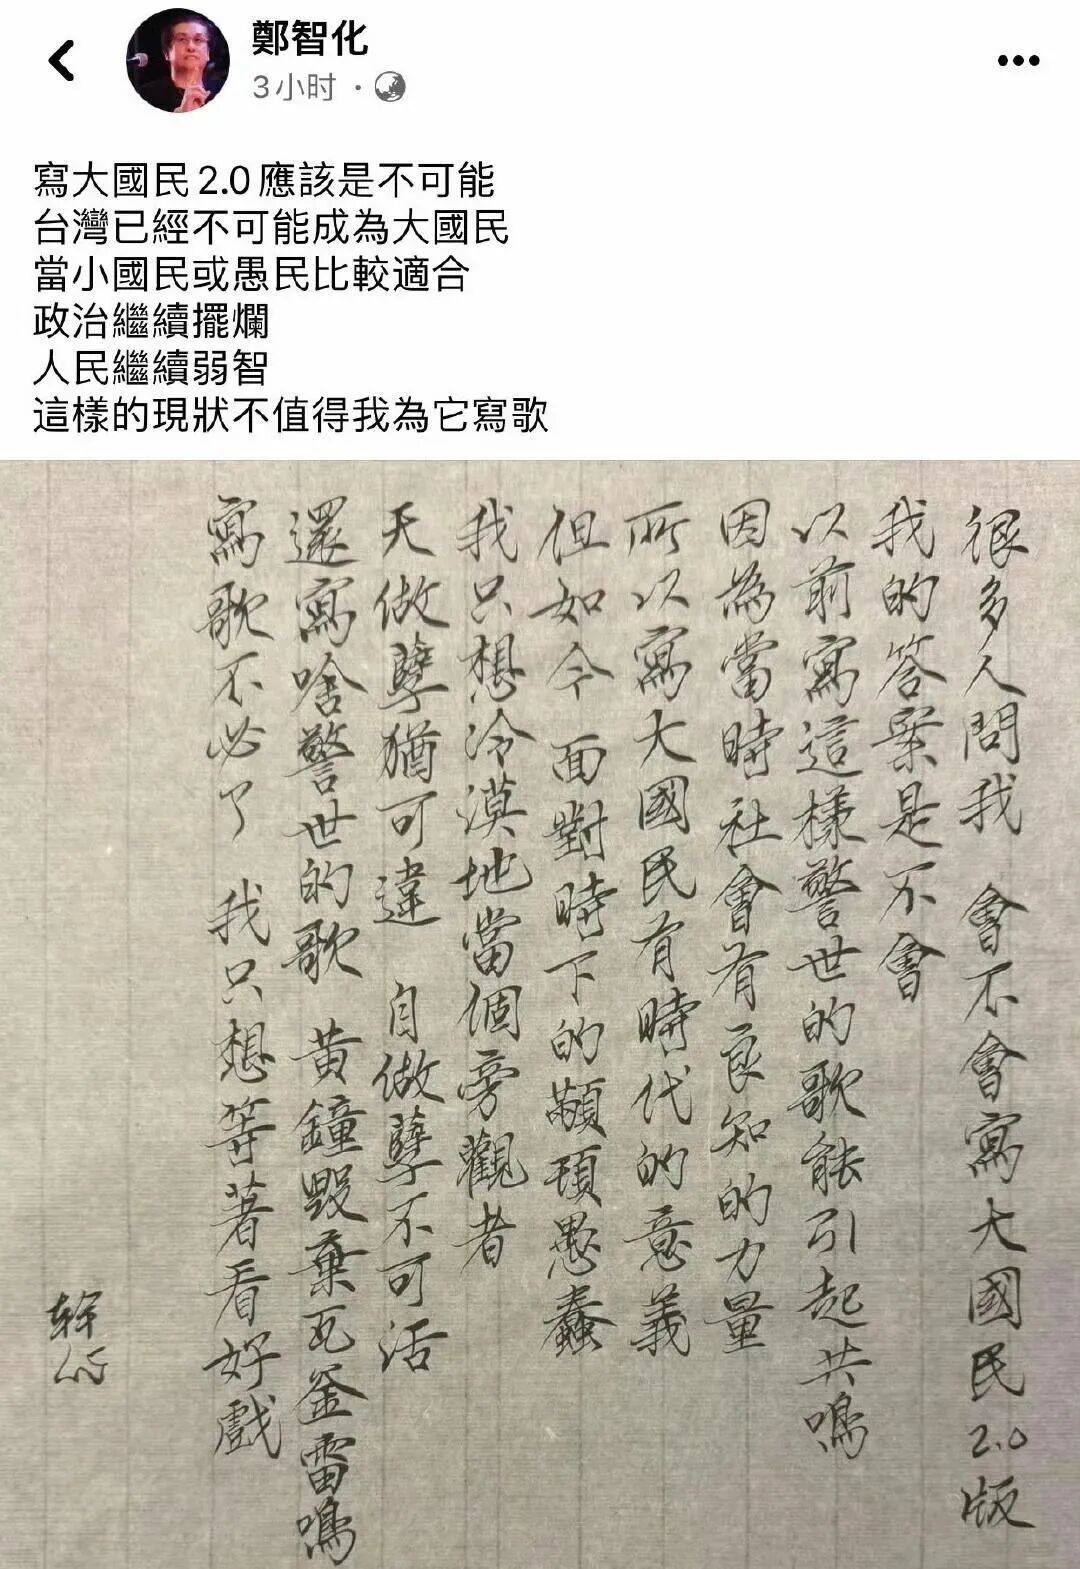 鄭智化
3小时
寫大國民2.0應該是不可能
台灣已經不可能成為大國民
當小國民或愚民比較適合
政治繼續擺爛
人民繼續弱智
這樣的現狀不值得我為它寫歌
很多人問我 會不會寫大國民2.0版
我的答案是不會
以前寫這樣警世的歌能引起共鳴
因為當時社會有良知的力量
所以寫大國民有時代的意義
但如今 面對時下的顢頇愚蠢
我只想冷漠地當個旁觀者
天做孽猶可違 自做孽不可活
還寫啥警世的歌 黃鐘毀棄瓦釜雷鳴
寫歌不必了 我只想等著看好戲